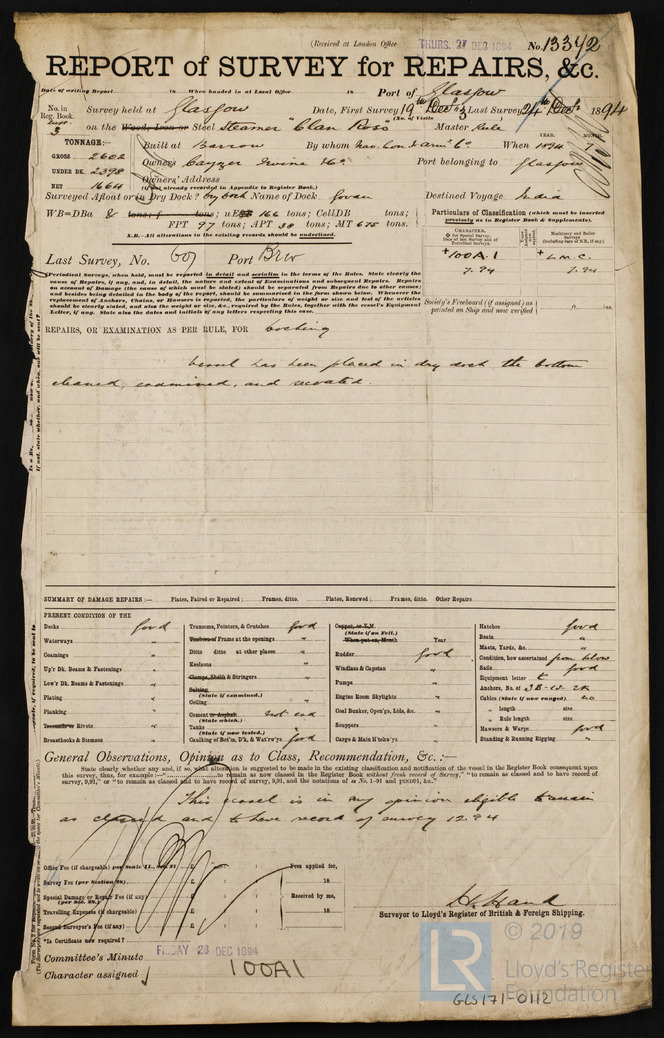 (Received at London Office THURS. 27 DEC 1894 No. 13342
REPORT of SURVEY for REPAIRS, &c.
Date of writing Report 18 When handed in at Local Office 18 Port of Glasgow
No. in Reg. Book. Survey held at Glasgow Date, First Survey 19th Dec Last Survey 24th Dec 1894
(No. of Visits 3)
3 on the Wood, Iron or Steel Steamer "Clan Ross" Master
TONNAGE:— Built at Barrow By whom Nav. Con & Arm. Co. When 1894
YEAR. MONTH.
GROSS 2602 Owners Cayzer Irvine & Co. Port belonging to Glasgow
UNDER DK. 2398 Owners' Address
NET 1664 (if not already recorded in Appendix to Register Book.)
Surveyed Afloat or in Dry Dock? Dry Dock Name of Dock Govan Destined Voyage India
WB=DBa & tons; f tons; uE&B 166 tons; CellDB tons;
FPT 97 tons; APT 38 tons; MT 675 tons.
N.B.—All alterations in the existing records should be underlined.
Particulars of Classification (which must be inserted precisely as in Register Book & Supplements).
CHARACTER. Machinery and Boiler Surveys (including date of N.B., if any).
+100A.1 + L.M.C.
7.94 7.94
Last Survey, No. 607 Port Brw
Periodical Surveys, when held, must be reported in detail and seriatim in the terms of the Rules. State clearly the
cause of Repairs, if any, and, in detail, the nature and extent of Examinations and subsequent Repairs. Repairs
on account of Damage (the cause of which must be stated) should be separated from Repairs due to other causes;
and besides being detailed in the body of the report, should be summarised in the form shown below. Whenever the
replacement of Anchors, Chains, or Hawsers is reported, the particulars of weight or size and test of the articles
should be clearly stated, and also the weight or size, &c., required by the Rules, together with the vessel's Equipment
Letter, if any. State also the dates and initials of any letters respecting this case.
Society's Freeboard (if assigned) as painted on Ship and now verified ft. ins.
REPAIRS, OR EXAMINATION AS PER RULE, FOR Docking
Vessel has been placed in dry dock the bottom
cleaned, examined, and recoated.
SUMMARY OF DAMAGE REPAIRS:— Plates, Faired or Repaired; Frames, ditto. Plates, Renewed; Frames, ditto. Other Repairs
PRESENT CONDITION OF THE
Decks good
Waterways "
Coamings "
Up'r Dk. Beams & Fastenings "
Low'r Dk. Beams & Fastenings "
Plating "
Planking "
Treenails or Rivets "
Breasthooks & Stemson "
Transoms, Pointers, & Crutches good
Timbers or Frame at the openings "
Ditto ditto at other places "
Keelsons "
Clamps, Shelfs & Stringers "
Salting (State if examined.)
Ceiling "
Cement or Asphalt (State which.) not exd
Tanks (State if now tested.)
Caulking of Bot'm, D'k, & Wat'rw'ys good
Copper, or Y.M. (State if on Felt.)
When put on, Month Year
Rudder good
Windlass & Capstan "
Pumps "
Engine Room Skylights "
Coal Bunker, Open'gs, Lids, &c. "
Scuppers "
Cargo & Main H'tchw'ys "
Hatches good
Boats "
Masts, Yards, &c. "
Condition, how ascertained from below
Sails good
Equipment letter t
Anchors, No. of 3B-1S-2K
Cables (State if now ranged) no
" length size
" Rule length size
Hawsers & Warps good
Standing & Running Rigging "
General Observations, Opinion as to Class, Recommendation, &c.:—
State clearly whether any, and if so, what alteration is suggested to be made in the existing classification and notification of the vessel in the Register Book consequent upon
this survey, thus, for example:—" to remain as now classed in the Register Book without fresh record of Survey," "to remain as classed and to have record of
survey, 9,91," or "to remain as classed and to have record of survey, 9,91, and the notations of
This vessel is in my opinion eligible to remain
as classed and to have record of survey 12.94
Office Fee (if chargeable) per Scale £ : : Fees applied for,
Survey Fee (per Section 28) £ : : 18
Special Damage or Repair Fee (if any) (per Sec. 28.) £ : : Received by me,
Travelling Expenses (if chargeable) £ : : 18
Second Surveyor's Fee (if any) £ : :
Surveyor to Lloyd's Register of British & Foreign Shipping.
*Is Certificate now required?
Committee's Minute FRIDAY 28 DEC 1894
Character assigned 100A1
© 2019
LR Lloyd's Register Foundation
GLS171-0112